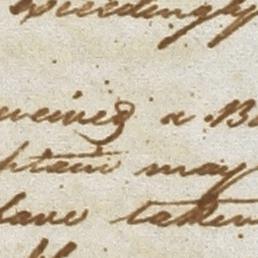 exceedingly
received a B
ptain may
have taken